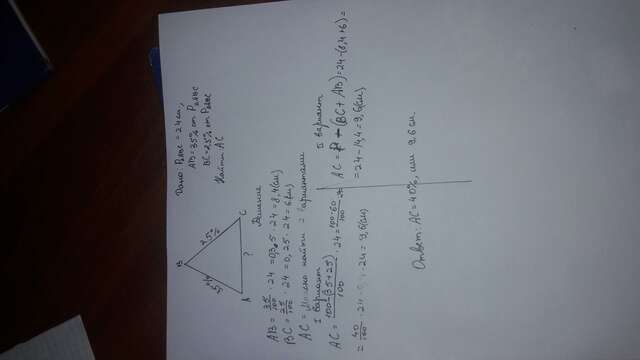 Дано: P△ABC = 24 см,
AB = 35% от P△ABC
BC = 25% от P△ABC
Найти AC
B
35%
25%
A
?
C
Решение
AB = 35/100 · 24 = 0,35 · 24 = 8,4 (см)
BC = 25/100 · 24 = 0,25 · 24 = 6 (см)
AC = можно найти 2 вариантами
I вариант
AC = 100-(35+25)/100 · 24 = 100-60/100 · 24
= 40/100 · 24 = · 24 = 9,6 (см)
II вариант
AC = P - (BC + AB) = 24 - (8,4 + 6) =
= 24 - 14,4 = 9,6 (см)
Ответ: AC = 40%, или 9,6 см.